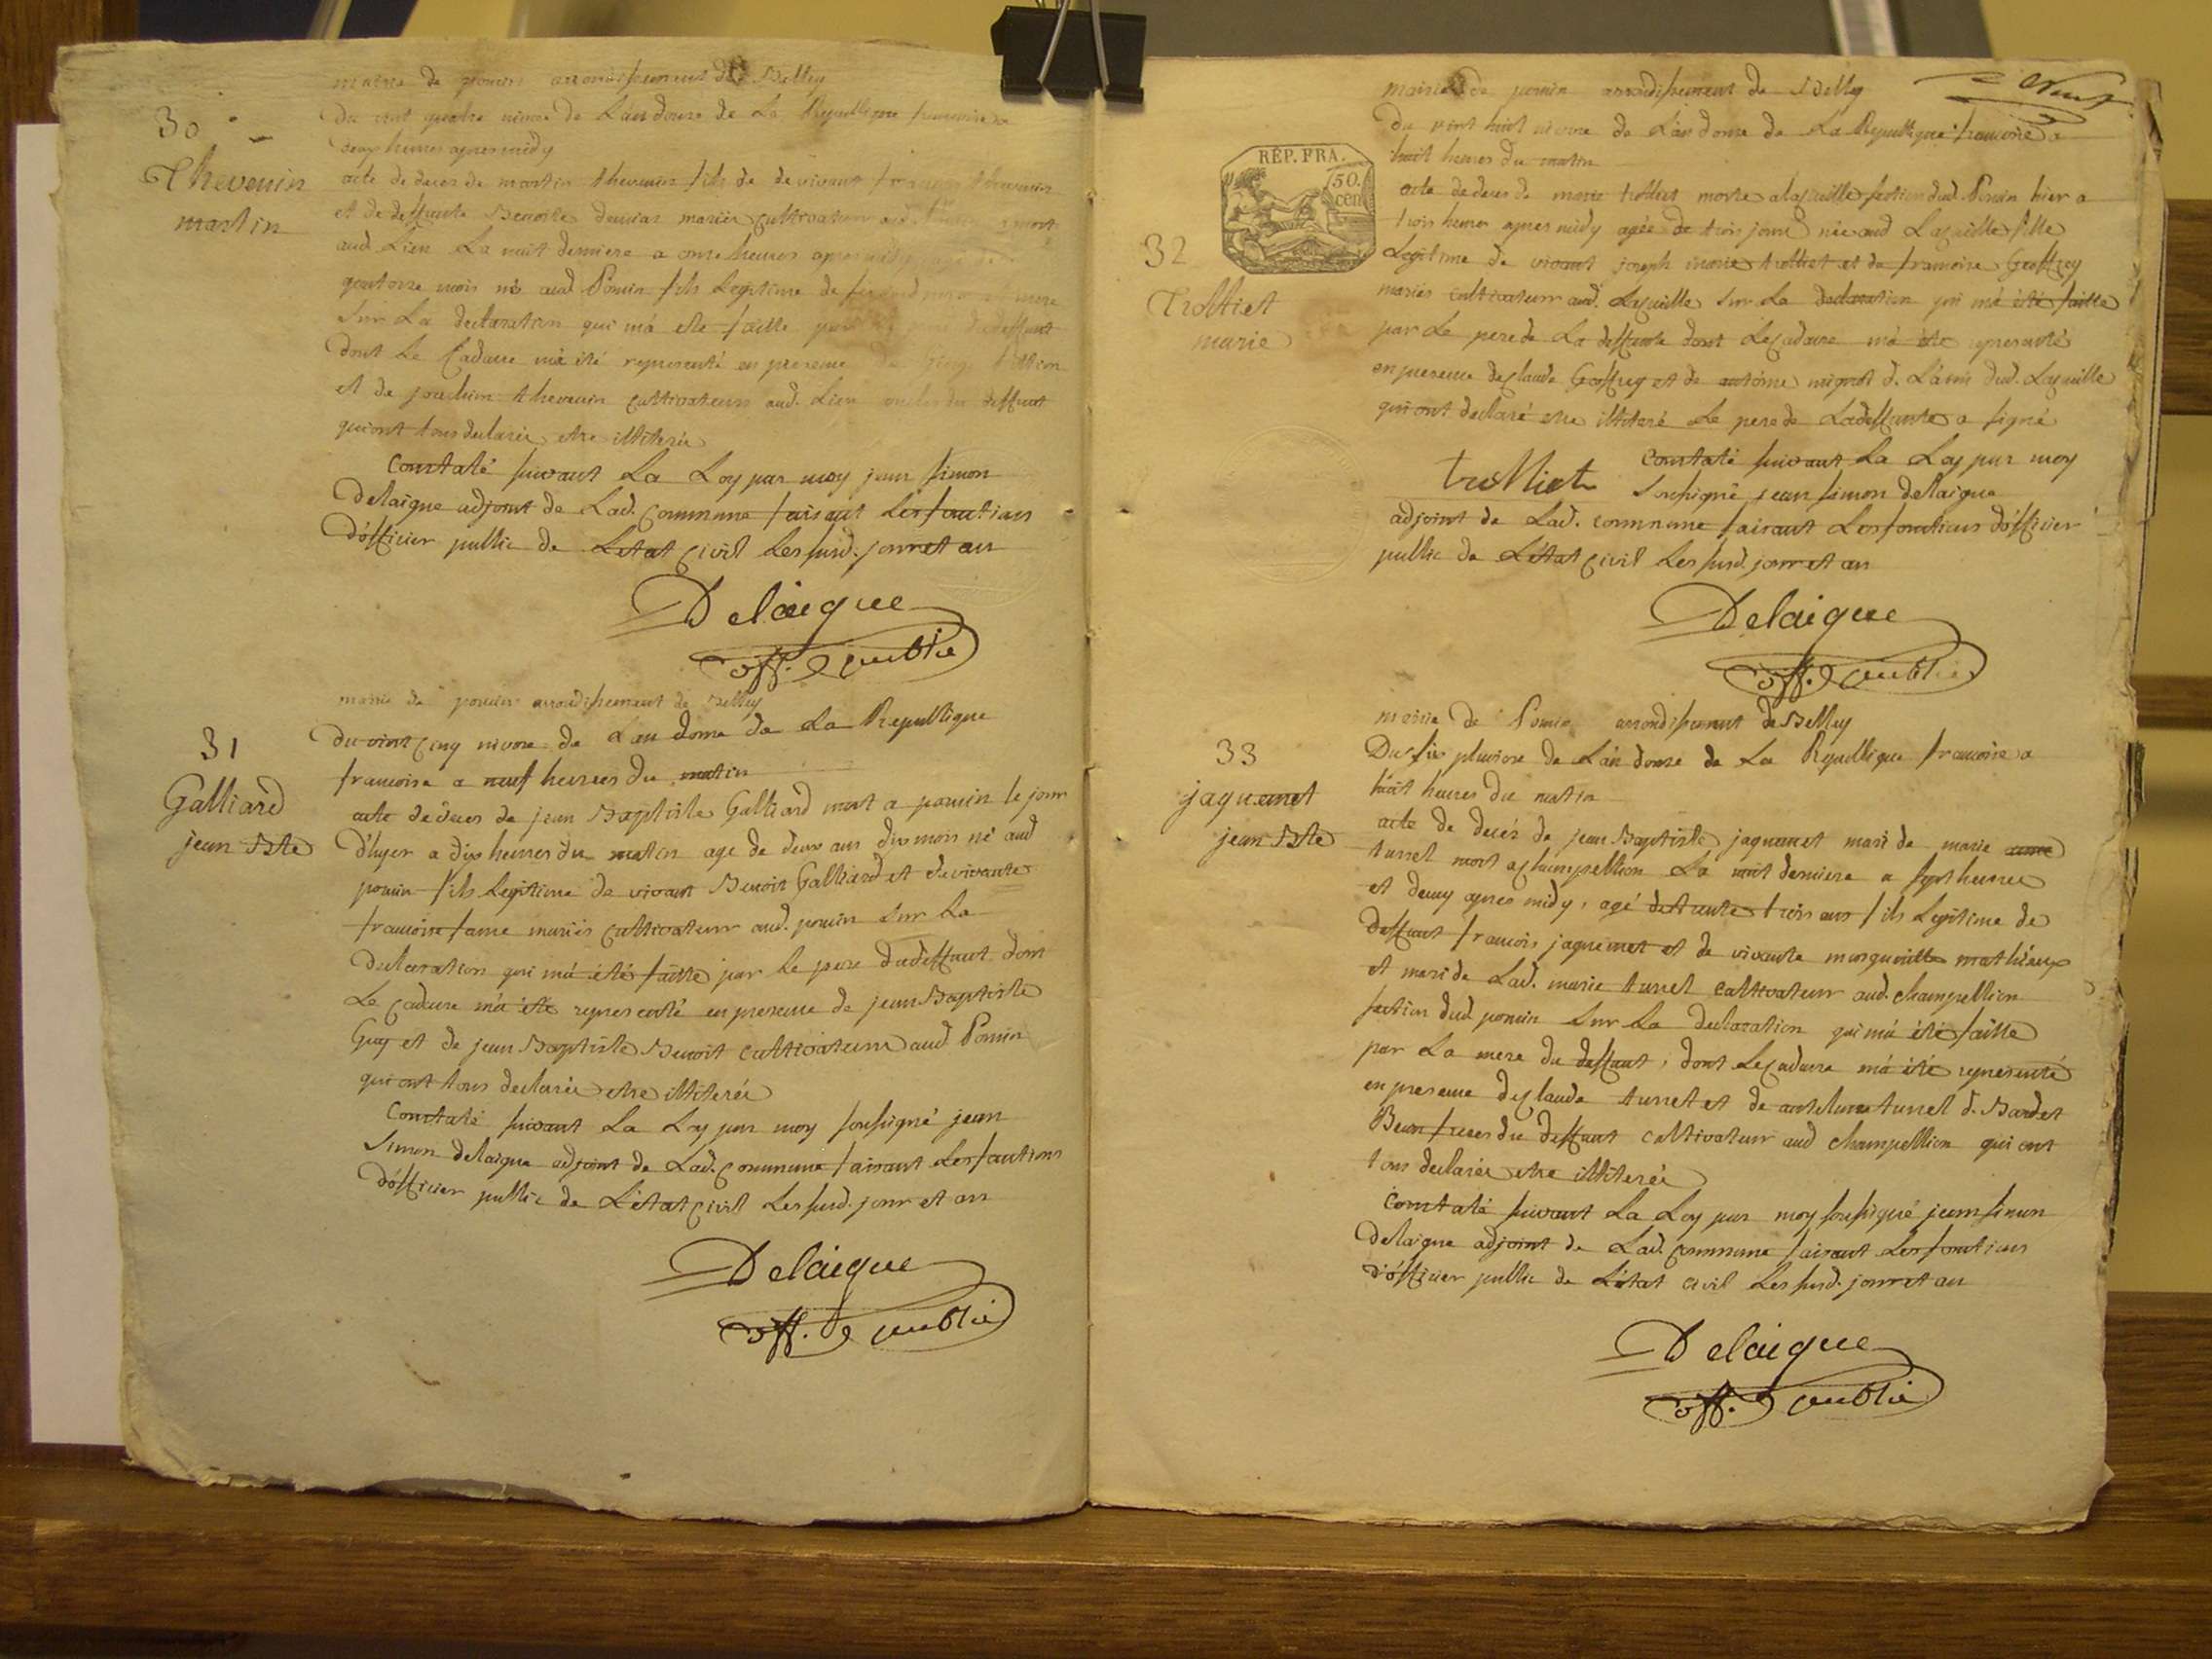 mairie de poncin arrondissement de Belley
30
Du vint quatre nivose de L'an douze de La Republique francoise a
deux heures apres midy
Thevenin
martin
acte de deces de martin thevenin fils de de vivant francois thevenin
et de deffunte Benoite mariés cultivateurs aud. mort
aud. Lieu La nuit derniere a onze heures apres midy agé de
quatorze mois né aud Poncin fils Legitime de
Sur La declaration qui m'a ete faitte par dudeffunt
dont Le Cadavre m'a été representé en presence de
et de joachim thevenin cultivateurs aud. Lieu oncles du deffunt
qui ont tous declarés etre illiterés
Constaté suivant La Loy par moy jean simon
delaigue adjoint de Lad. Commune faisant Les fonctions
D'officier public de L'etat civil Les susd. jour et an
Delaigue
off. public
mairie de poncin arrondissement de Belley
31
Du vint cinq nivose de L'an douze de La Republique
francoise a neuf heures du matin
Galliard
jean Bte
acte de deces de jean Baptiste Galliard mort a poncin le jour
d'hyer a dix heures du matin age de deux ans dix mois né aud
poncin fils Legitime de vivant Benoit Galliard et de vivante
francoise fame mariés cultivateurs aud. poncin Sur La
declaration qui m'a été faitte par Le pere dudeffunt dont
Le Cadavre m'a été representé en presence de jean Baptiste
Guy et de jean Baptiste Benoit cultivateurs aud Poncin
qui ont tous declarés etre illiterés
Constaté suivant La Loy par moy soussigné jean
Simon delaigue adjoint de Lad. commune faisant Les fonctions
D'officier public de L'état civil Les susd. jour et an
Delaigue
off. public
mairie de poncin arrondissement de Belley
Du vint huit nivose de L'an douze de La Republique francoise a
huit heures du matin
REP. FRA.
50.
cen
32
Trolliet
marie
acte de deces de marie trolliet morte a Lecuille section dud. Poncin hier a
trois heures apres midy agée de trois jours née aud Lecuille fille
Legitime de vivant joseph marie trolliet et de francoise Geoffrey
mariés cultivateurs aud. Lecuille Sur La declaration qui m'a été faitte
par Le pere de La deffunte dont Le Cadavre m'a été representé
en presence de Claude Geoffrey et de antoine mignot d. L'ainé dud. Lecuille
qui ont declaré etre illiteré Le pere de Ladeffunte a signé
trolliet Constaté suivant La Loy par moy
soussigné jean simon delaigue
adjoint de Lad. commune faisant Les fonctions D'officier
public de L'état civil Les susd. jour et an
Delaigue
off. public
mairie de Poncin arrondissement de Belley
33
Du six pluviose de L'an douze de La Republique francoise a
huit heures du matin
jaquemet
jean Bte
acte de decés de jean Baptiste jaquemet mari de marie
turrel mort a champellion La nuit derniere a sept heures
et demy apres midy, agé de trente trois ans fils Legitime de
deffunt francois jaquemet et de vivante margueritte mathieux
et mari de Lad. marie turrel cultivateur aud. champellion
section dud poncin Sur La declaration qui m'a été faitte
par La mere du deffunt, dont Le Cadavre m'a été representé
en presence de Claude turrel et de antelme turrel d. Bardet
Beau freres du deffunt cultivateurs aud champellion qui ont
tous declarés etre illiterés
Constaté suivant La Loy par moy soussigné jean simon
delaigue adjoint de Lad. commune faisant Les fonctions
D'officier public de L'état civil Les susd. jour et an
Delaigue
off. public